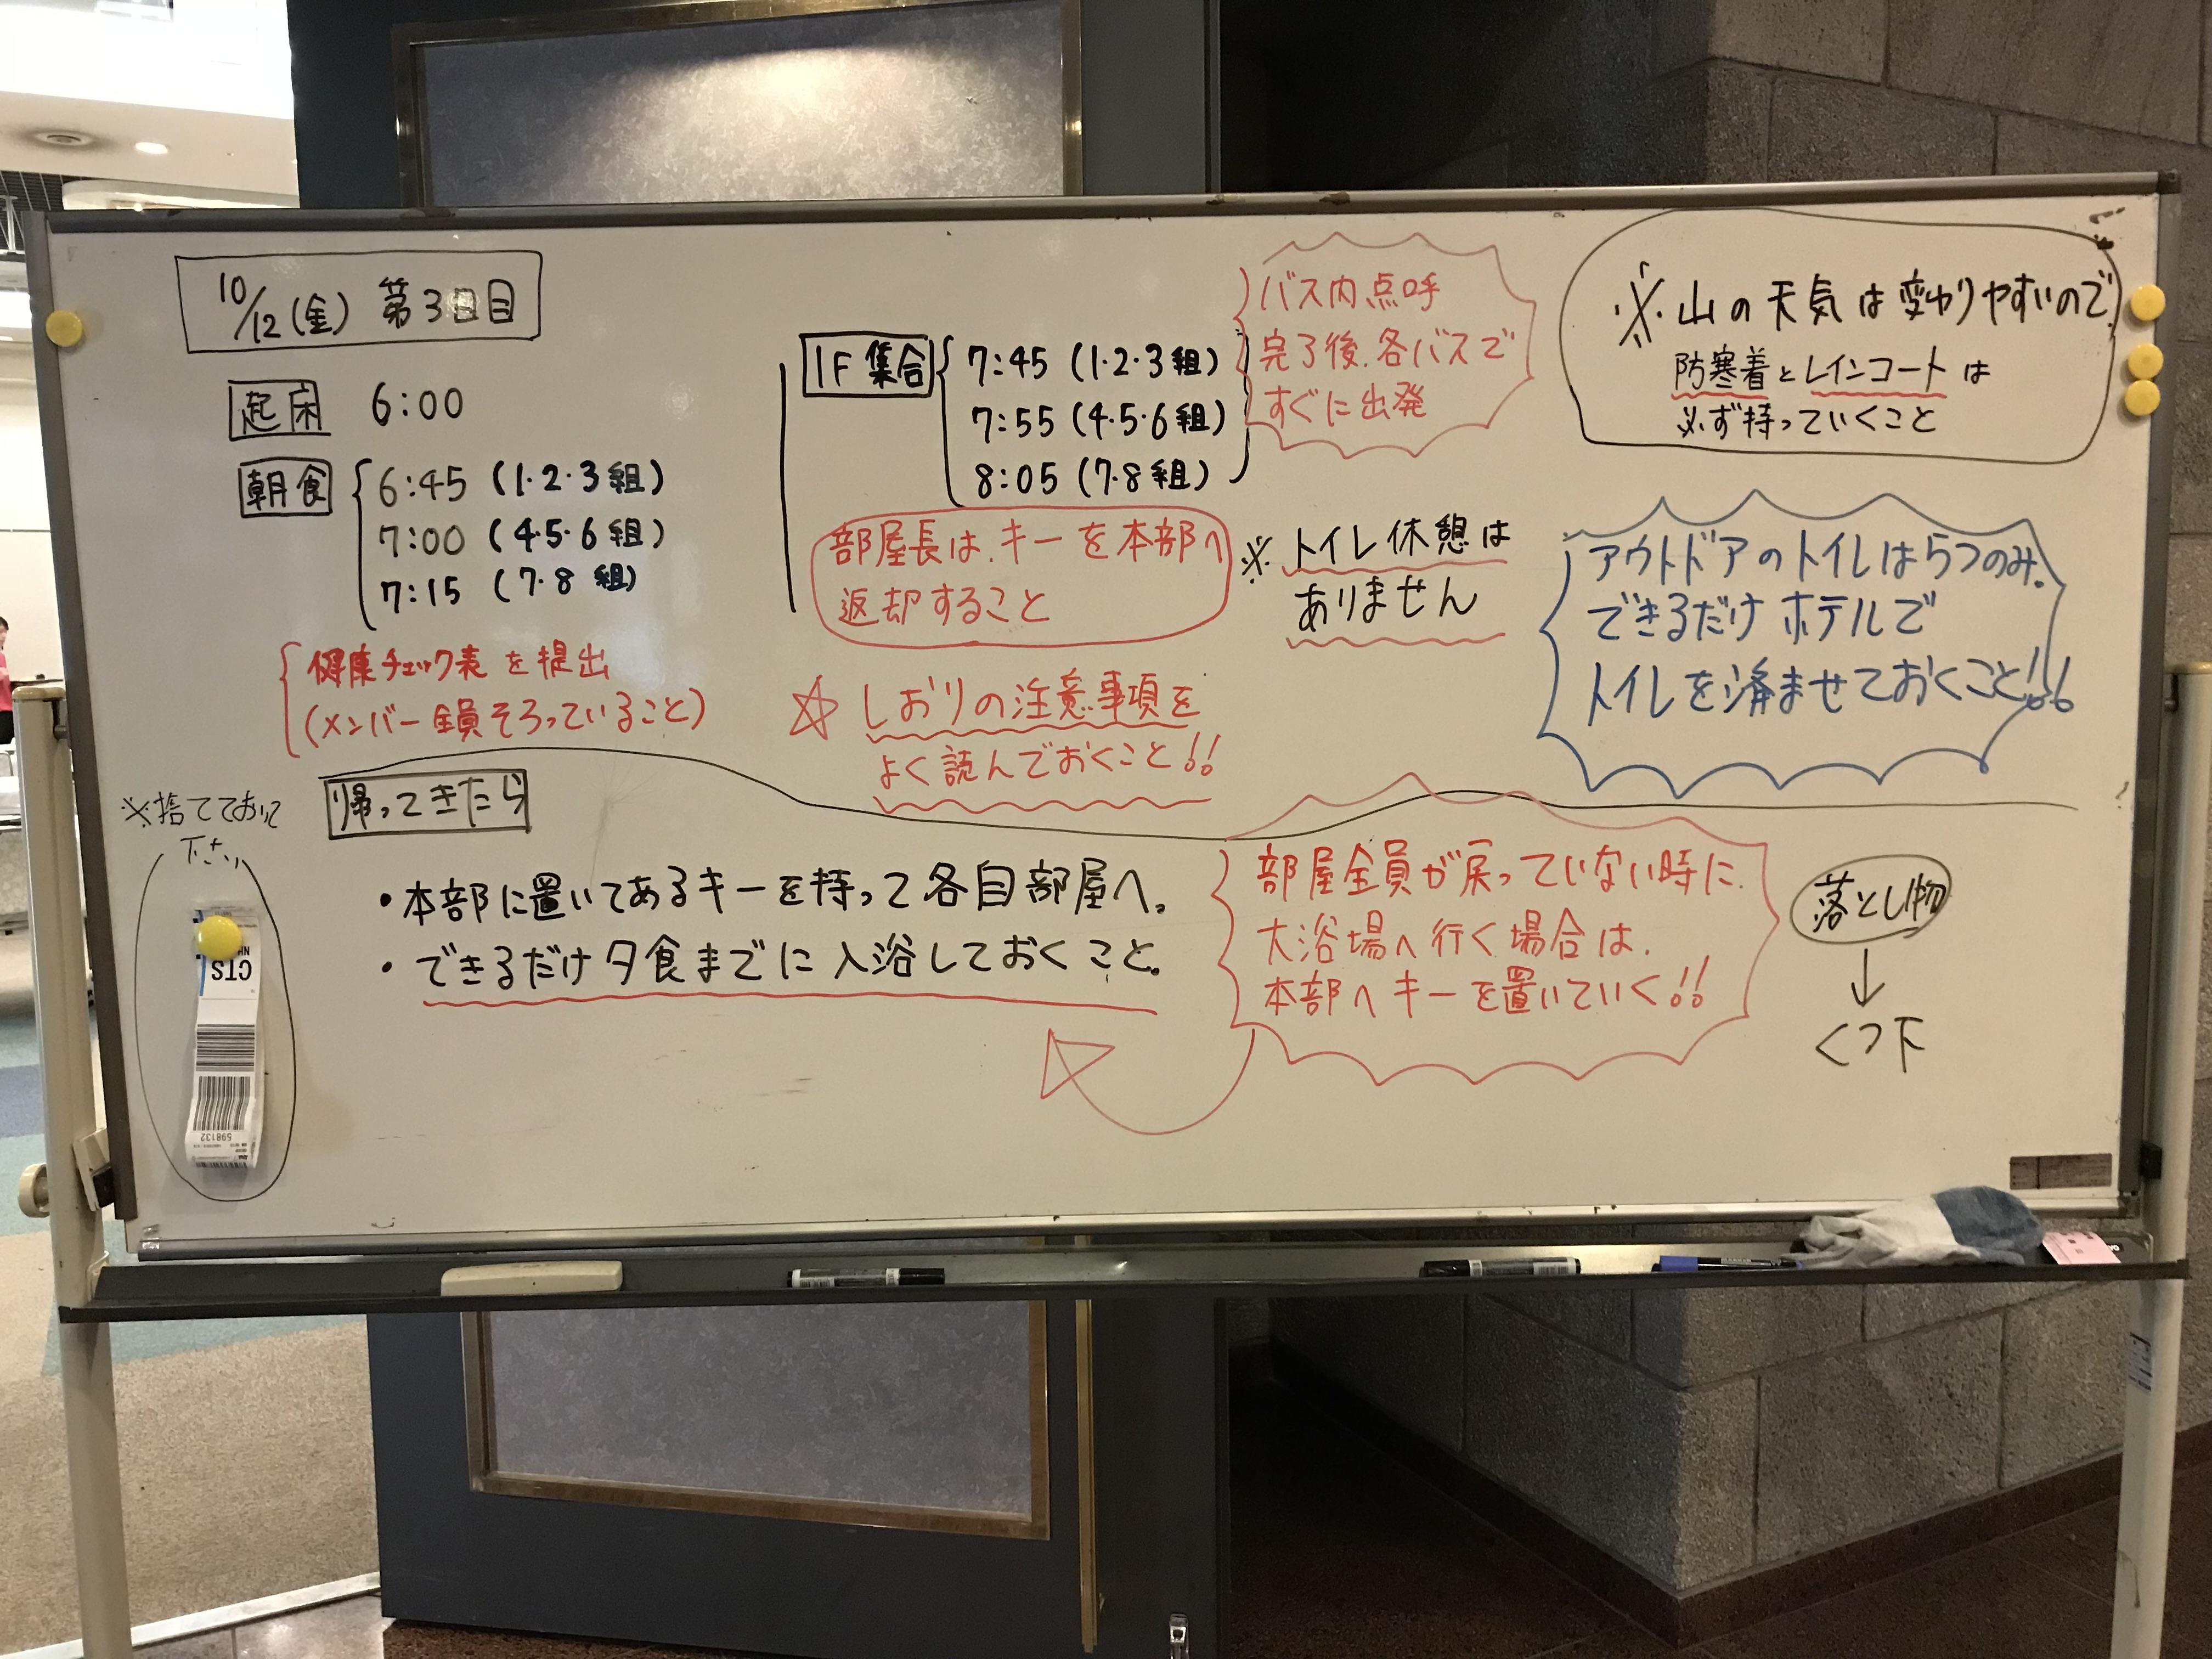 10/12(金) 第3日目
起床 6:00
朝食
6:45 (1・2・3組)
7:00 (4・5・6組)
7:15 (7・8 組)
健康チェック表 を提出
(メンバー全員そろっていること)
1F 集合
7:45 (1・2・3組)
7:55 (4・5・6組)
8:05 (7・8組)
バス内点呼
完了後、各バスで
すぐに出発
部屋長は、キーを本部へ
返却すること
※トイレ休憩は
ありません
☆ しおりの注意事項を
よく読んでおくこと!!
※山の天気は変わりやすいので、
防寒着とレインコートは
必ず持っていくこと
アウトドアのトイレは5つのみ。
できるだけホテルで
トイレを済ませておくこと!!
帰ってきたら
・本部に置いてあるキーを持って各自部屋へ。
・できるだけ夕食までに入浴しておくこと。
部屋全員が戻っていない時に、
大浴場へ行く場合は、
本部へキーを置いていく!!
落とし物
↓
くつ下
※捨てておいて
下さい
CTS
598132